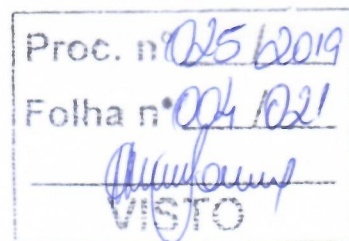 Proc. nº 025/2019
Folha nº 004/021
VISTO